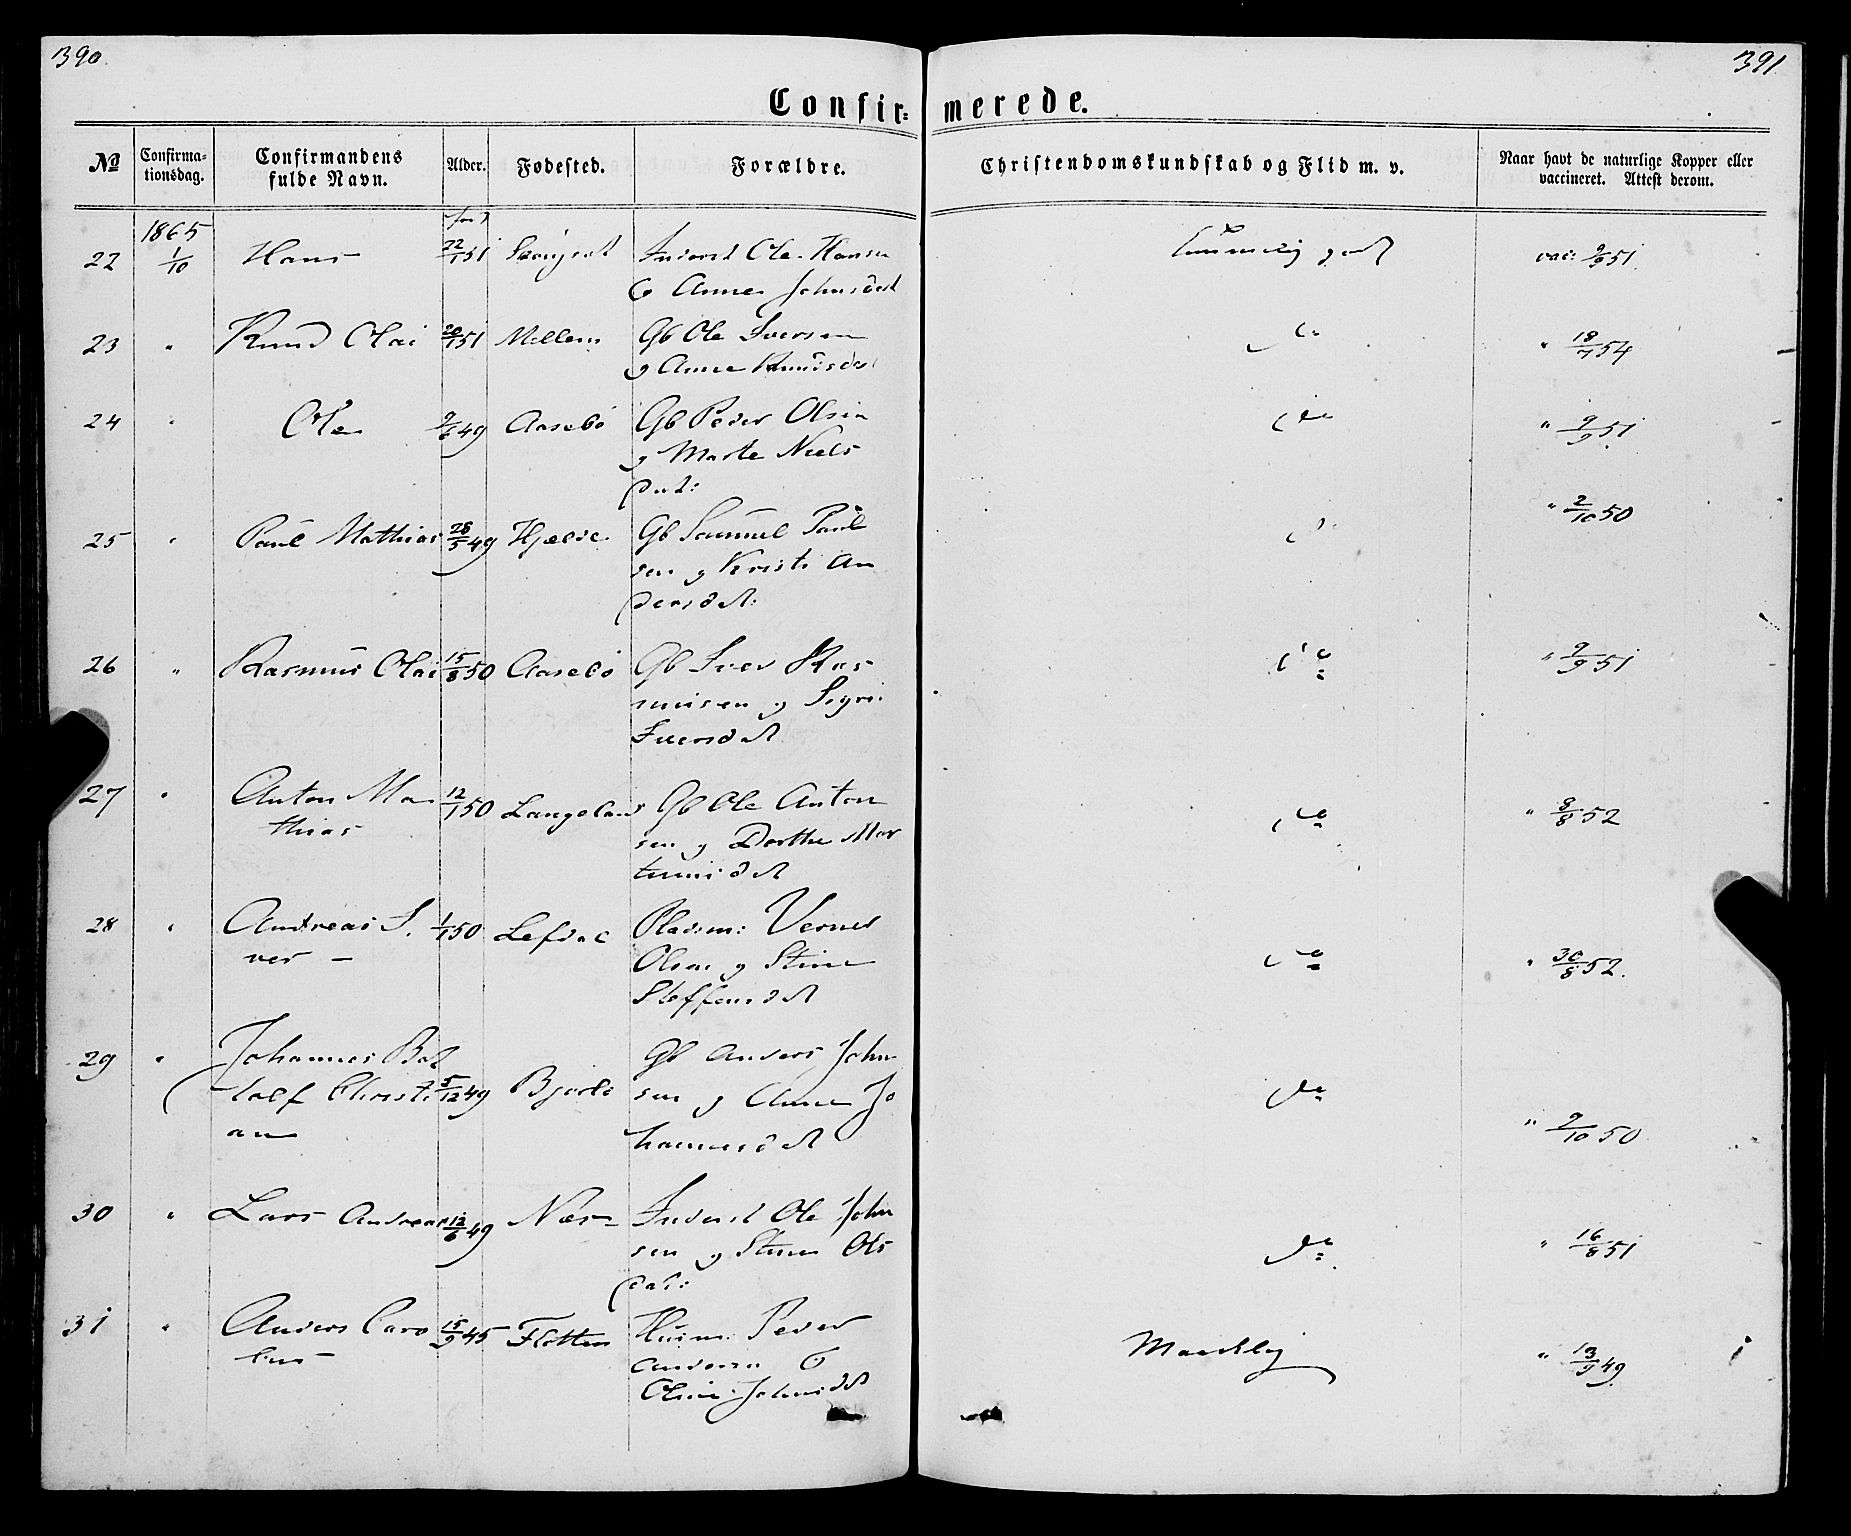 390
391
Confir=
merede.
No
Confirma-
tionsdag.
Confirmandens
fulde Navn.
Alder.
Fødested.
Forældre.
Christendomskundskab og Flid m. v.
Naar havt de naturlige Kopper eller
vaccineret. Attest derom.
1865
22 1/10 Hans 22/1 51 Inderst Ole Hansen
& Anne Johnsdat
god
vac: 9/9 51.
23 " Knud Olai 20/1 51 Mellem Gb Ole Iversen
og Anne Knudsdat
" 18/7 54
24 " Ole 9/6 49 Aasebö Gb Peder Olsen
og Marte Niels
dat:
do
" 9/9 51
25 " Paul Mathias 28/5 49 Hjelde Gb Samuel Paul
sen og Kristi An
dersdat:
" 2/10 50
26 " Rasmus Olai 15/8 50 Aasebö Gb Iver Ras
musen og Sigri
Iversdat
do
" 9/9 51
27 " Anton Ma 12/1 50 Langeland Gb Ole Anton
thias
sen og Dorthe Mor
tensdat
do
" 8/8 52
28 " Andreas S. 1/1 50 Lefdal Pladsm: Verner
ver –
Olsen og Stine
Steffensdat
do
" 30/8 52.
29 " Johannes Bot
tolf Christi 5/12 49 Bjerlo
an
Gb Anders John
sen og Anne Jo
hannesdat
do
" 2/10 50
30 " Lars Andreas 12/6 49 Nes Inderst Ole John
sen og Stine Ols
dat:
do
" 16/8 51
31 " Anders Caro 15/9 45 Flotten Huusm: Peder
linus
Andersen &
Oline Johnsdat
Maadelig
" 13/9 49.